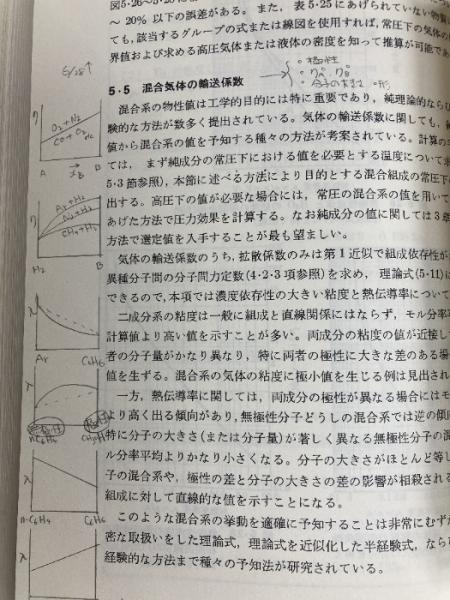 図5·26~5·28に
~ 20% 以下の誤差がある。また, 表5·25にあげられていない物質
ても,該当するグループの式または線図を使用すれば,常圧下の気体の
界値および求める高圧気体または液体の密度を知って推算が可能であ
5/25↑
・極性
5·5 混合気体の輸送係数
混合系の物性値は工学的目的には特に重要であり,純理論的ならび
験的な方法が数多く提出されている。気体の輸送係数に関しても,純
値から混合系の値を予知する種々の方法が考案されている。計算の
ては, まず純成分の常圧下における値を必要とする温度について求
5·3節参照),本節に述べる方法により目的とする混合組成の常圧下
出する。高圧下の値が必要な場合には,常圧の混合系の値を用いて
あげた方法で圧力効果を計算する。なお純成分の値に関しては3章
方法で選定値を入手することが最も望ましい。
気体の輸送係数のうち,拡散係数のみは第1近似で組成依存性が
異種分子間の分子間力定数(4·2·3項参照)を求め, 理論式(5·11)に
できるので,本項では濃度依存性の大きい粘度と熱伝導率について
二成分系の粘度は一般に組成と直線関係にはならず,モル分率平
計算値より高い値を示すことが多い。両成分の粘度の値が近接し
者の分子量がかなり異なり,特に両者の極性に大きな差のある場
値を生ずる。混合系の気体の粘度に極小値を生じる例は見出され
一方,熱伝導率に関しては,両成分の極性が異なる場合にはモ
より高く出る傾向があり,無極性分子どうしの混合系では逆の傾向
特に分子の大きさ(または分子量)が著しく異なる無極性分子の混
ル分率平均よりかなり小さくなる。分子の大きさがほとんど等し
子の混合系や,極性の差と分子の大きさの差の影響が相殺される
組成に対して直線的な値を示すことになる。
このような混合系の挙動を適確に予知することは非常にむずか
密な取扱いをした理論式,理論式を近似化した半経験式,ならび
経験的な方法まで種々の予知法が研究されている。
η
O₂+N₂
CO+O₂
etc
A
B
η
Ar+H₂
N₂+H₂
CH₄+H₂
H₂
B
λ
Ar
C₆H₆
λ
無極性
極性
λ
C₆H₆
λ